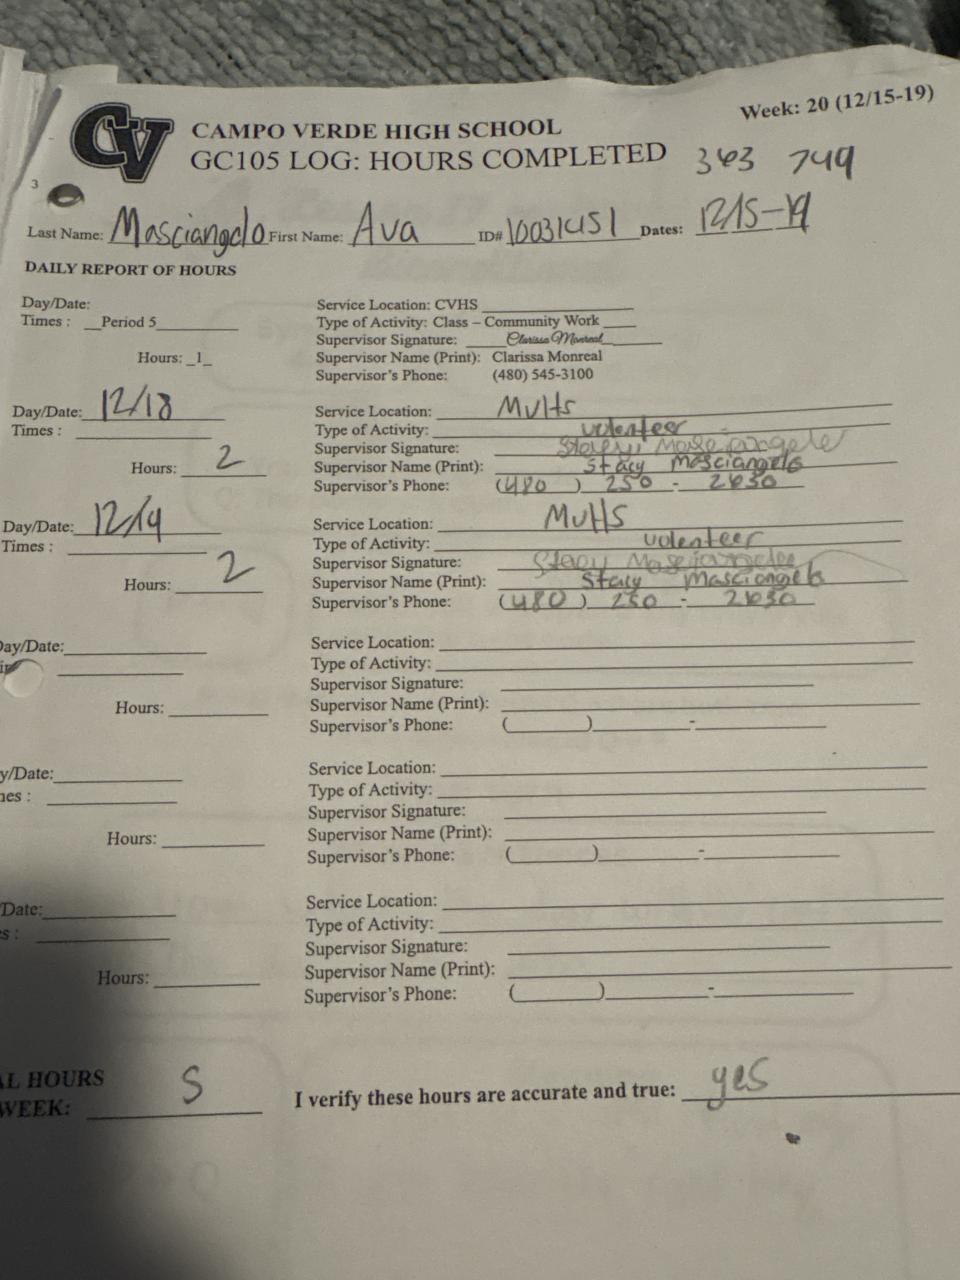 Week: 20 (12/15-19)
CV CAMPO VERDE HIGH SCHOOL
GC105 LOG: HOURS COMPLETED 363 749
3
Last Name: Masciangelo First Name: Ava ID# 10031451 Dates: 12/15-19
DAILY REPORT OF HOURS
Day/Date: Service Location: CVHS
Times : Period 5 Type of Activity: Class – Community Work
Supervisor Signature: Clarissa Monreal
Hours: 1 Supervisor Name (Print): Clarissa Monreal
Supervisor's Phone: (480) 545-3100
Day/Date: 12/18 Service Location: Mutts
Times : Type of Activity: volenteer
Supervisor Signature: Stacy Masciangelo
Hours: 2 Supervisor Name (Print): Stacy Masciangelo
Supervisor's Phone: (480) 250 - 2630
Day/Date: 12/19 Service Location: Mutts
Times : Type of Activity: volenteer
Supervisor Signature: Stacy Masciangelo
Hours: 2 Supervisor Name (Print): Stacy Masciangelo
Supervisor's Phone: (480) 250 - 2630
Day/Date: Service Location:
Type of Activity:
Supervisor Signature:
Hours: Supervisor Name (Print):
Supervisor's Phone: ( ) -
y/Date: Service Location:
nes : Type of Activity:
Supervisor Signature:
Hours: Supervisor Name (Print):
Supervisor's Phone: ( ) -
Date: Service Location:
s : Type of Activity:
Supervisor Signature:
Hours: Supervisor Name (Print):
Supervisor's Phone: ( ) -
AL HOURS
WEEK: 5 I verify these hours are accurate and true: yes